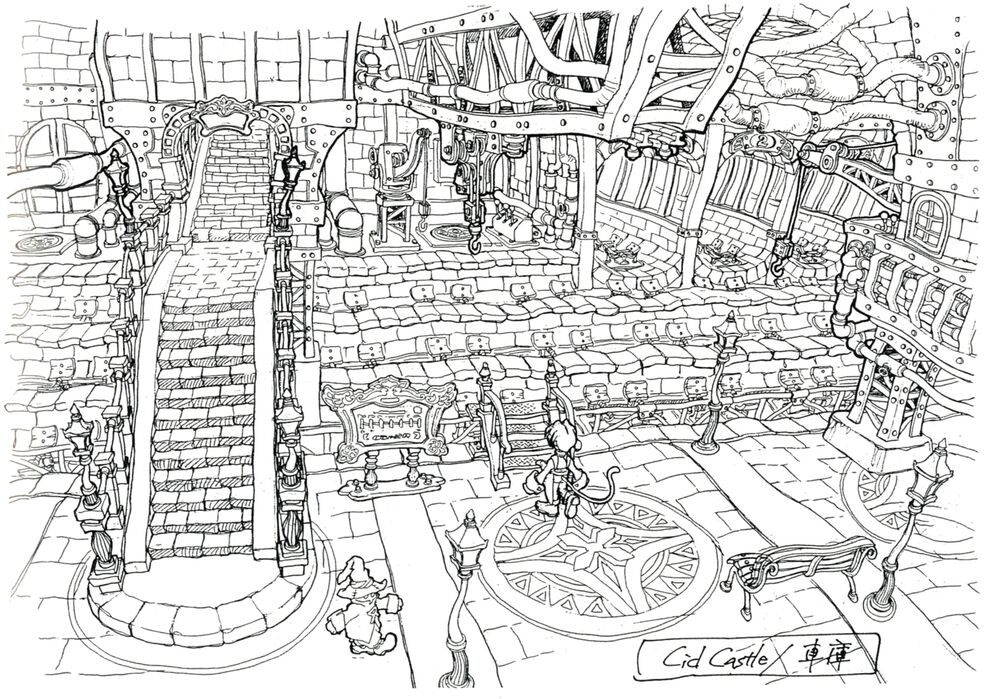 2
Cid Castle / 車庫